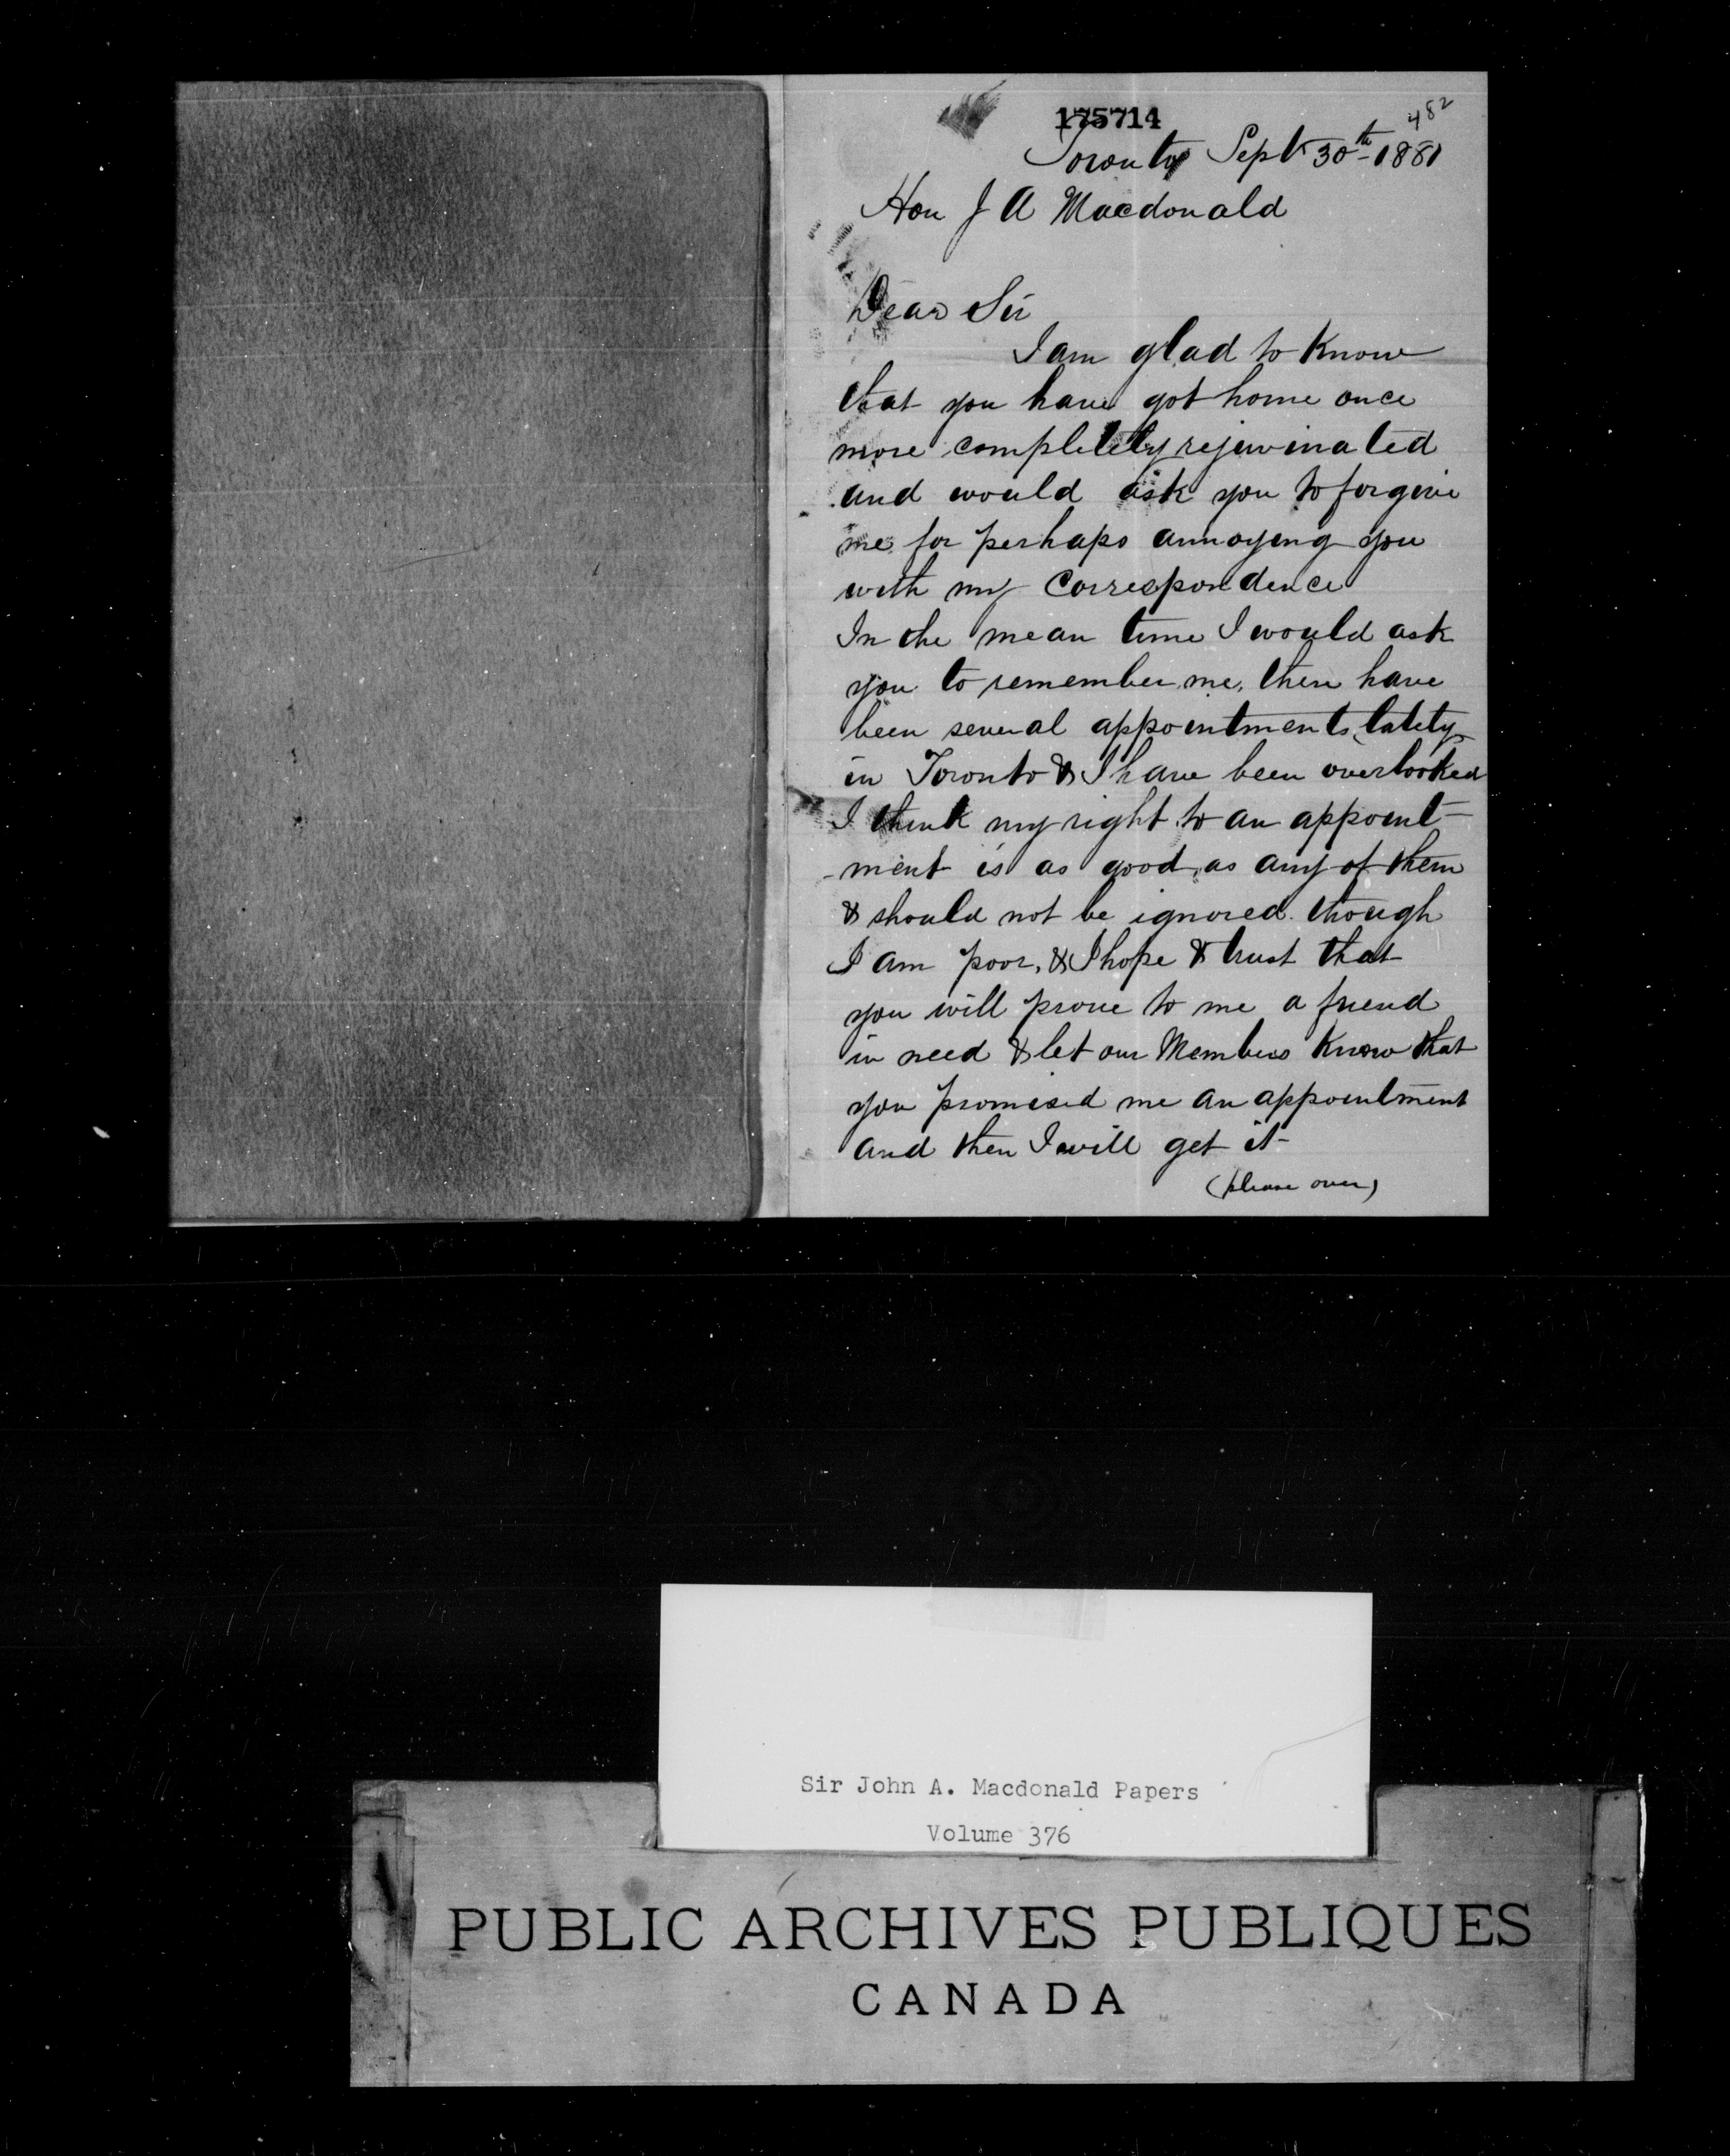 175714
482
Toronto Sept 30th 1881
Hon J A Macdonald
Dear Sir
I am glad to know
that you have got home once
more completely rejuvinated
and would ask you to forgive
me for perhaps annoying you
with my Correspondence
In the mean time I would ask
you to remember me, there have
been several appointments lately
in Toronto & I have been overlooked
I think my right to an appoint-
ment is as good as any of them
& should not be ignored though
I am poor, & I hope & trust that
you will prove to me a friend
in need & let our Members know that
you promised me an appointment
and then I will get it-
(please over)
Sir John A. Macdonald Papers
Volume 376
PUBLIC ARCHIVES PUBLIQUES
CANADA